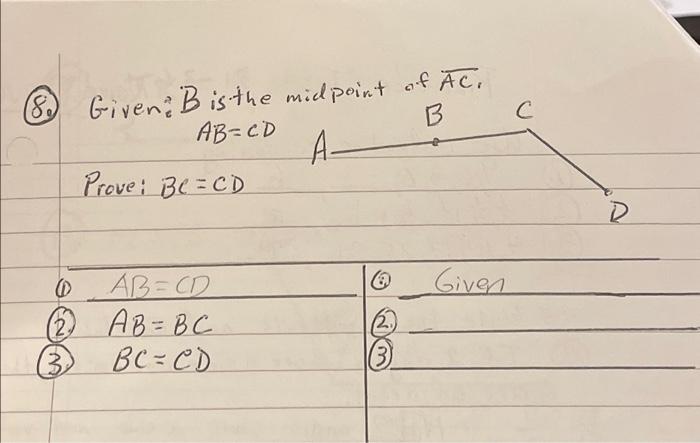 8. Given: B is the midpoint of AC.
AB = CD
A B C D
Prove: BC = CD
① AB = CD ① Given
② AB = BC ②
③ BC = CD ③